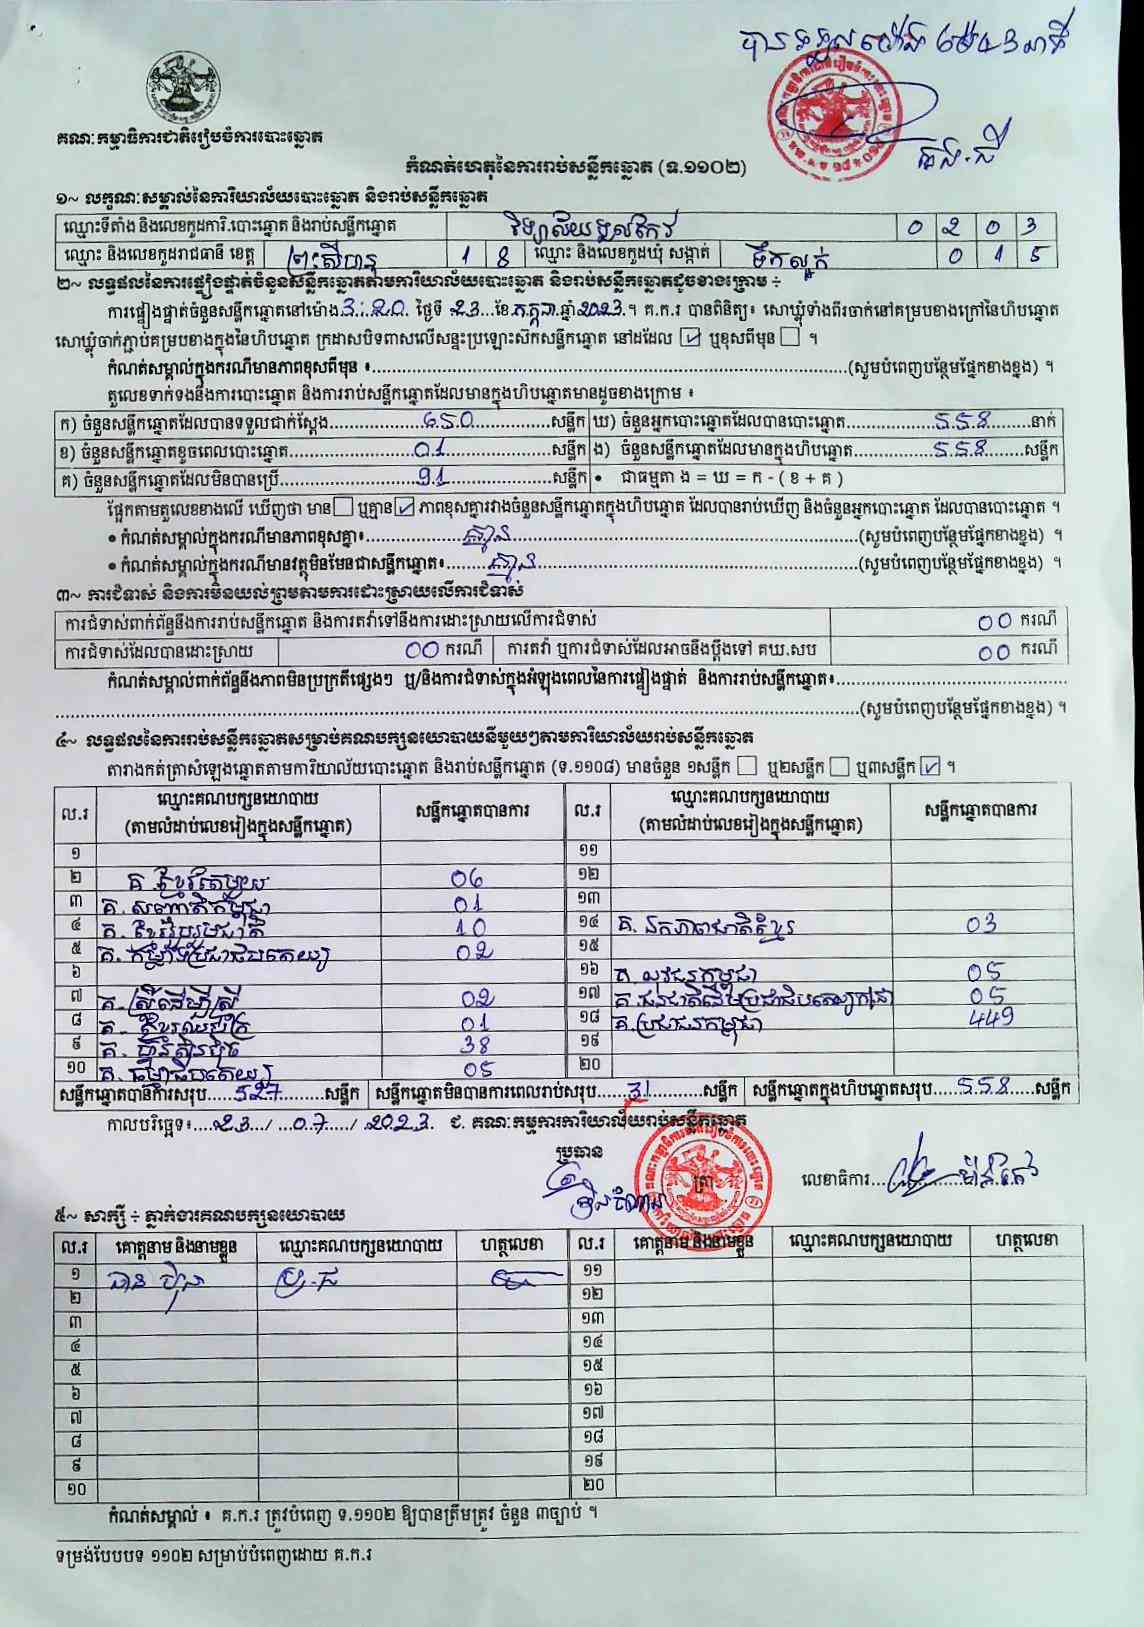 បានទទួលម៉ោង ៦ម៉ែ៤៣នាទី
គណៈកម្មាធិការជាតិរៀបចំការបោះឆ្នោត
កំណត់ហេតុនៃការរាប់សន្លឹកឆ្នោត (ទ.១១០២)
១~ លក្ខណៈសម្គាល់នៃការិយាល័យបោះឆ្នោត និងរាប់សន្លឹកឆ្នោត
ឈ្មោះទីតាំង និងលេខកូដការិ.បោះឆ្នោត និងរាប់សន្លឹកឆ្នោត វិទ្យាល័យទួលកែវ 0 2 0 3
ឈ្មោះ និងលេខកូដរាជធានី ខេត្ត ព្រះសីហនុ 1 8 ឈ្មោះ និងលេខកូដឃុំ សង្កាត់ ទឹកល្អក់ 0 1 5
២~ លទ្ធផលនៃការផ្ទៀងផ្ទាត់ចំនួនសន្លឹកឆ្នោតតាមការិយាល័យបោះឆ្នោត និងរាប់សន្លឹកឆ្នោតដូចខាងក្រោម ÷
ការផ្ទៀងផ្ទាត់ចំនួនសន្លឹកឆ្នោតនៅម៉ោង 3:20 ថ្ងៃទី 23 ខែ កក្កដា ឆ្នាំ 2023 ។ គ.ក.រ បានពិនិត្យ៖ សោឃ្លុំទាំងពីរចាក់នៅគម្របខាងក្រៅនៃហិបឆ្នោត
សោឃ្លុំចាក់ភ្ជាប់គម្របខាងក្នុងនៃហិបឆ្នោត ក្រដាសបិទពាសលើសន្ទះប្រឡោះស៊កសន្លឹកឆ្នោត នៅដដែល ☑ ឬខុសពីមុន ☐ ។
កំណត់សម្គាល់ក្នុងករណីមានភាពខុសពីមុន ៖ (សូមបំពេញបន្ថែមផ្នែកខាងខ្នង) ។
តួលេខទាក់ទងនឹងការបោះឆ្នោត និងការរាប់សន្លឹកឆ្នោតដែលមានក្នុងហិបឆ្នោតមានដូចខាងក្រោម ៖
ក) ចំនួនសន្លឹកឆ្នោតដែលបានទទួលជាក់ស្តែង 650 សន្លឹក ឃ) ចំនួនអ្នកបោះឆ្នោតដែលបានបោះឆ្នោត 558 នាក់
ខ) ចំនួនសន្លឹកឆ្នោតខូចពេលបោះឆ្នោត 01 សន្លឹក ង) ចំនួនសន្លឹកឆ្នោតដែលមានក្នុងហិបឆ្នោត 558 សន្លឹក
គ) ចំនួនសន្លឹកឆ្នោតដែលមិនបានប្រើ 91 សន្លឹក • ជាធម្មតា ង = ឃ = ក - ( ខ + គ )
ផ្អែកតាមតួលេខខាងលើ ឃើញថា មាន ☐ ឬគ្មាន ☑ ភាពខុសគ្នារវាងចំនួនសន្លឹកឆ្នោតក្នុងហិបឆ្នោត ដែលបានរាប់ឃើញ និងចំនួនអ្នកបោះឆ្នោត ដែលបានបោះឆ្នោត ។
• កំណត់សម្គាល់ក្នុងករណីមានភាពខុសគ្នា៖ គ្មាន (សូមបំពេញបន្ថែមផ្នែកខាងខ្នង) ។
• កំណត់សម្គាល់ក្នុងករណីមានវត្ថុមិនមែនជាសន្លឹកឆ្នោត៖ គ្មាន (សូមបំពេញបន្ថែមផ្នែកខាងខ្នង) ។
៣~ ការជំទាស់ និងការមិនយល់ព្រមតាមការដោះស្រាយលើការជំទាស់
ការជំទាស់ពាក់ព័ន្ធនឹងការរាប់សន្លឹកឆ្នោត និងការតវ៉ាទៅនឹងការដោះស្រាយលើការជំទាស់ 00 ករណី
ការជំទាស់ដែលបានដោះស្រាយ 00 ករណី ការតវ៉ា ឬការជំទាស់ដែលអាចនឹងប្តឹងទៅ គឃ.សប 00 ករណី
កំណត់សម្គាល់ពាក់ព័ន្ធនឹងភាពមិនប្រក្រតីផ្សេងៗ ឬ/និងការជំទាស់ក្នុងអំឡុងពេលនៃការផ្ទៀងផ្ទាត់ និងការរាប់សន្លឹកឆ្នោត៖
(សូមបំពេញបន្ថែមផ្នែកខាងខ្នង) ។
៤~ លទ្ធផលនៃការរាប់សន្លឹកឆ្នោតសម្រាប់គណបក្សនយោបាយនីមួយៗតាមការិយាល័យរាប់សន្លឹកឆ្នោត
តារាងកត់ត្រាសំឡេងឆ្នោតតាមការិយាល័យបោះឆ្នោត និងរាប់សន្លឹកឆ្នោត (ទ.១១០៨) មានចំនួន ១សន្លឹក ☐ ឬ២សន្លឹក ☐ ឬ៣សន្លឹក ☑ ។
ល.រ ឈ្មោះគណបក្សនយោបាយ (តាមលំដាប់លេខរៀងក្នុងសន្លឹកឆ្នោត) សន្លឹកឆ្នោតបានការ ល.រ ឈ្មោះគណបក្សនយោបាយ (តាមលំដាប់លេខរៀងក្នុងសន្លឹកឆ្នោត) សន្លឹកឆ្នោតបានការ
១ ១១
២ គ.ខ្មែរតែមួយ 06 ១២
៣ គ.សញ្ជាតិកម្ពុជា 01 ១៣
៤ គ.ខ្មែររួបរួមជាតិ 10 ១៤ គ.ឯកភាពជាតិខ្មែរ 03
៥ គ.កម្លាំងប្រជាធិបតេយ្យ 02 ១៥
៦ ១៦ គ.យុវជនកម្ពុជា 05
៧ គ.ស្ត្រីដើម្បីស្ត្រី 02 ១៧ គ.ជនជាតិដើមប្រជាធិបតេយ្យកម្ពុជា 05
៨ គ.ខ្មែរឈប់ក្រ 01 ១៨ គ.ប្រជាជនកម្ពុជា 449
៩ គ.ហ្វ៊ុនស៊ិនប៉ិច 38 ១៩
១០ គ.ធម្មាធិបតេយ្យ 05 ២០
សន្លឹកឆ្នោតបានការសរុប 527 សន្លឹក សន្លឹកឆ្នោតមិនបានការពេលរាប់សរុប 31 សន្លឹក សន្លឹកឆ្នោតក្នុងហិបឆ្នោតសរុប 558 សន្លឹក
កាលបរិច្ឆេទ៖ 23 / 07 / 2023 ជ. គណៈកម្មការការិយាល័យរាប់សន្លឹកឆ្នោត
ប្រធាន
ត្រា
លេខាធិការ
៥~ សាក្សី ÷ ភ្នាក់ងារគណបក្សនយោបាយ
ល.រ គោត្តនាម និងនាមខ្លួន ឈ្មោះគណបក្សនយោបាយ ហត្ថលេខា ល.រ គោត្តនាម និងនាមខ្លួន ឈ្មោះគណបក្សនយោបាយ ហត្ថលេខា
១ ប្រ.ជ ១១
២ ១២
៣ ១៣
៤ ១៤
៥ ១៥
៦ ១៦
៧ ១៧
៨ ១៨
៩ ១៩
១០ ២០
កំណត់សម្គាល់ ៖ គ.ក.រ ត្រូវបំពេញ ទ.១១០២ ឱ្យបានត្រឹមត្រូវ ចំនួន ៣ច្បាប់ ។
ទម្រង់បែបបទ ១១០២ សម្រាប់បំពេញដោយ គ.ក.រ